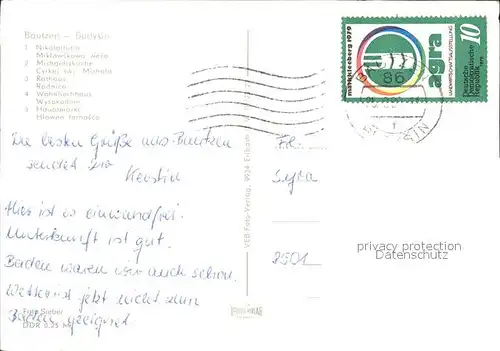 Bautzen - Budyšin
1 Nikolaiturm
Mikławšowa wěža
2 Michaeliskirche
Cyrkej swj. Michała
3 Rathaus
Radnica
4 Wohnhochhaus
Wysokodom
5 Hauptmarkt
Hłowne torhošćo
Die besten Grüße aus Bautzen
sendet Dir
Kerstin
Hier ist es einwandfrei.
Unterkunft ist gut.
Baden waren wir auch schon.
Wetter ist jetzt nicht zum
Baden geeignet
Foto Sieber
DDR 0,25 M
VEB Foto-Verlag, 9934 Erlbach
markkleeberg 1979
agra
LANDWIRTSCHAFTSAUSSTELLUNG
Deutsche
Demokratische
Republik
10
86
Frl.
Syra
privacy protection
Datenschutz